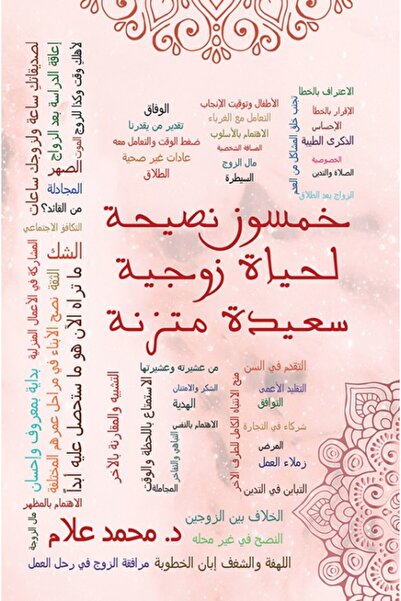 الاعتراف بالخطأ
الإقرار بالخطأ
الإحساس
الذكرى الطيبة
الخصوصية
الصلاة والتدين
الزواج بعد الطلاق
تجنب خلق المشاكل من العدم
الأطفال وتوقيت الإنجاب
التعامل مع الغرباء
الاهتمام بالأسلوب
المسافة الشخصية
مال الزوج
السيطرة
الوفاق
تقدير من يقدرنا
ضغط الوقت والتعامل معه
عادات غير صحية
الطلاق
لأهلك وقت وكذا للزوج
الموت
إعاقة الدراسة بعد الزواج
الصهر
لصديقاتك ساعة ولزوجك ساعات
المجادلة
من القائد؟
التكافؤ الاجتماعي
خمسون نصيحة
لحياة زوجية
سعيدة متزنة
الشك
الثقة
ما تراه الآن هو ما ستحصل عليه أبداً
نصح الأبناء في مراحل عمرهم المختلفة
المشاركة في الأعمال المنزلية
بداية بمعروف وإحسان
التقدم في السن
التقليد الأعمى
التوافق
شركاء في التجارة
المرض
زملاء العمل
التباين في التدين
منح الانتباه الكامل للطرف الآخر
من عشيرته وعشيرتها
الشكر والامتنان
الهدية
الاهتمام بالنفس
التباهي والتفاخر
المجاملة
الاستمتاع باللحظة والوقت
التشبيه والمقارنة بالآخر
الاهتمام بالمظهر
مال الزوجة
د. محمد علام
الخلاف بين الزوجين
النصح في غير محله
اللهفة والشغف إبان الخطوبة
مرافقة الزوج في رحل العمل